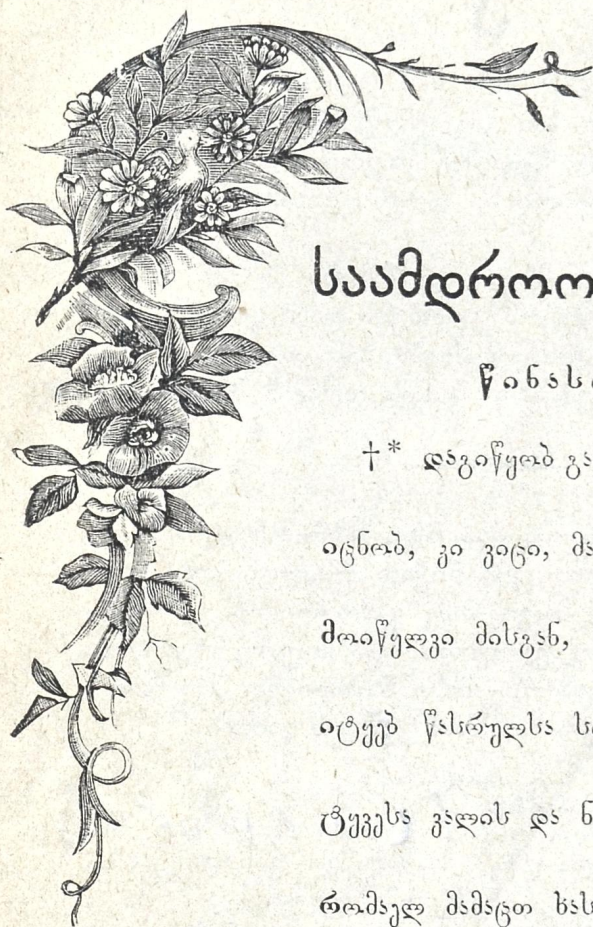 საამდროო
წინას
†* დაგიწყობ გა
იცნობ, კი ვიცი, მა
მოიწყლვი მისგან,
იტყებ წასრულსა ს
ტყვესა ვალის და ნ
რომაელ მამაცთ ხას